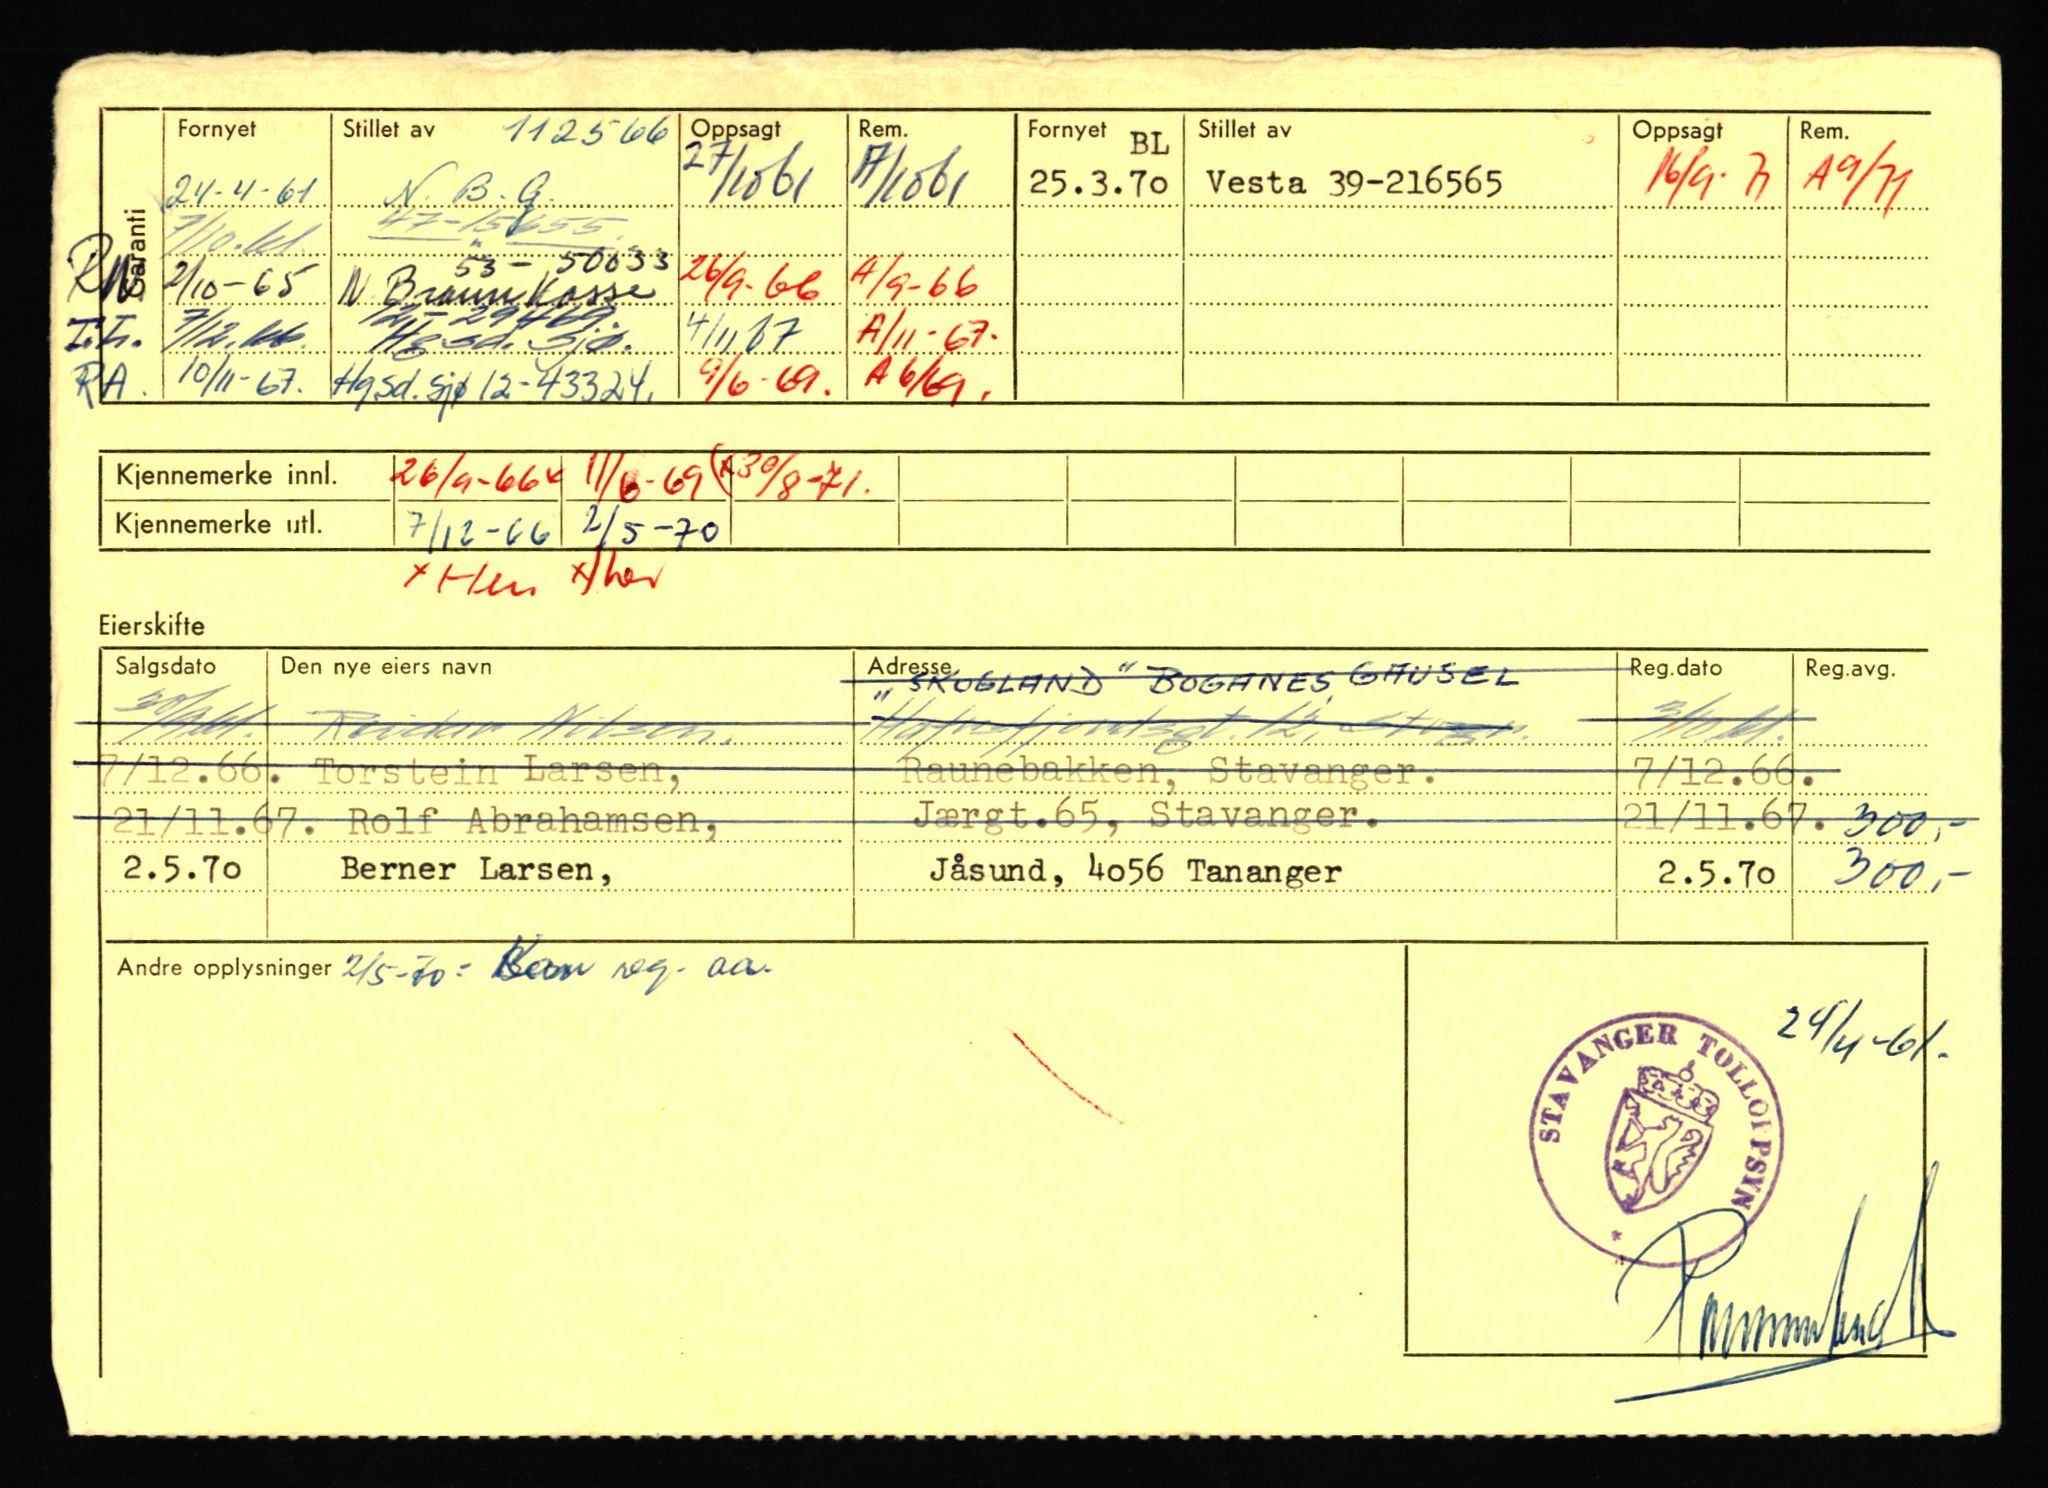 Garanti
Fornyet Stillet av 112566 Oppsagt Rem. Fornyet BL Stillet av Oppsagt Rem.
24-4-61 N. B. G. 27/10 61 A/10 61 25.3.70 Vesta 39-216565 16/9-71 A 9/71
7/10.61. 47-15655.
53-50633
RN. 2/10-65 N. Braun Kasse 26/9-66 A/9-66
12-29469.
T.L. 7/12.66. Hgsd. Sjø. 4/11 67 A/11-67.
RA. 10/11-67. Hgsd. sjø 12-43324. 9/6-69. A 6/69.
Kjennemerke innl. 26/9-66 x 11/6-69 (x 30/8-71.
Kjennemerke utl. 7/12-66 2/5-70
x Her x/her
Eierskifte
Salgsdato Den nye eiers navn Adresse Reg.dato Reg.avg.
"SKOGLAND" BOGANES, GAUSEL
30/9.61. Reidar Nilsen. Hafrsfjordsgt. 12, Stvgr. 3/10.61.
7/12.66. Torstein Larsen, Raunebakken, Stavanger. 7/12.66.
21/11.67. Rolf Abrahamsen, Jærgt.65, Stavanger. 21/11.67. 300,-
2.5.70 Berner Larsen, Jåsund, 4056 Tananger 2.5.70 300,-
Andre opplysninger 2/5-70: reg. aa.
24/4-61.
STAVANGER TOLLOPPSYN